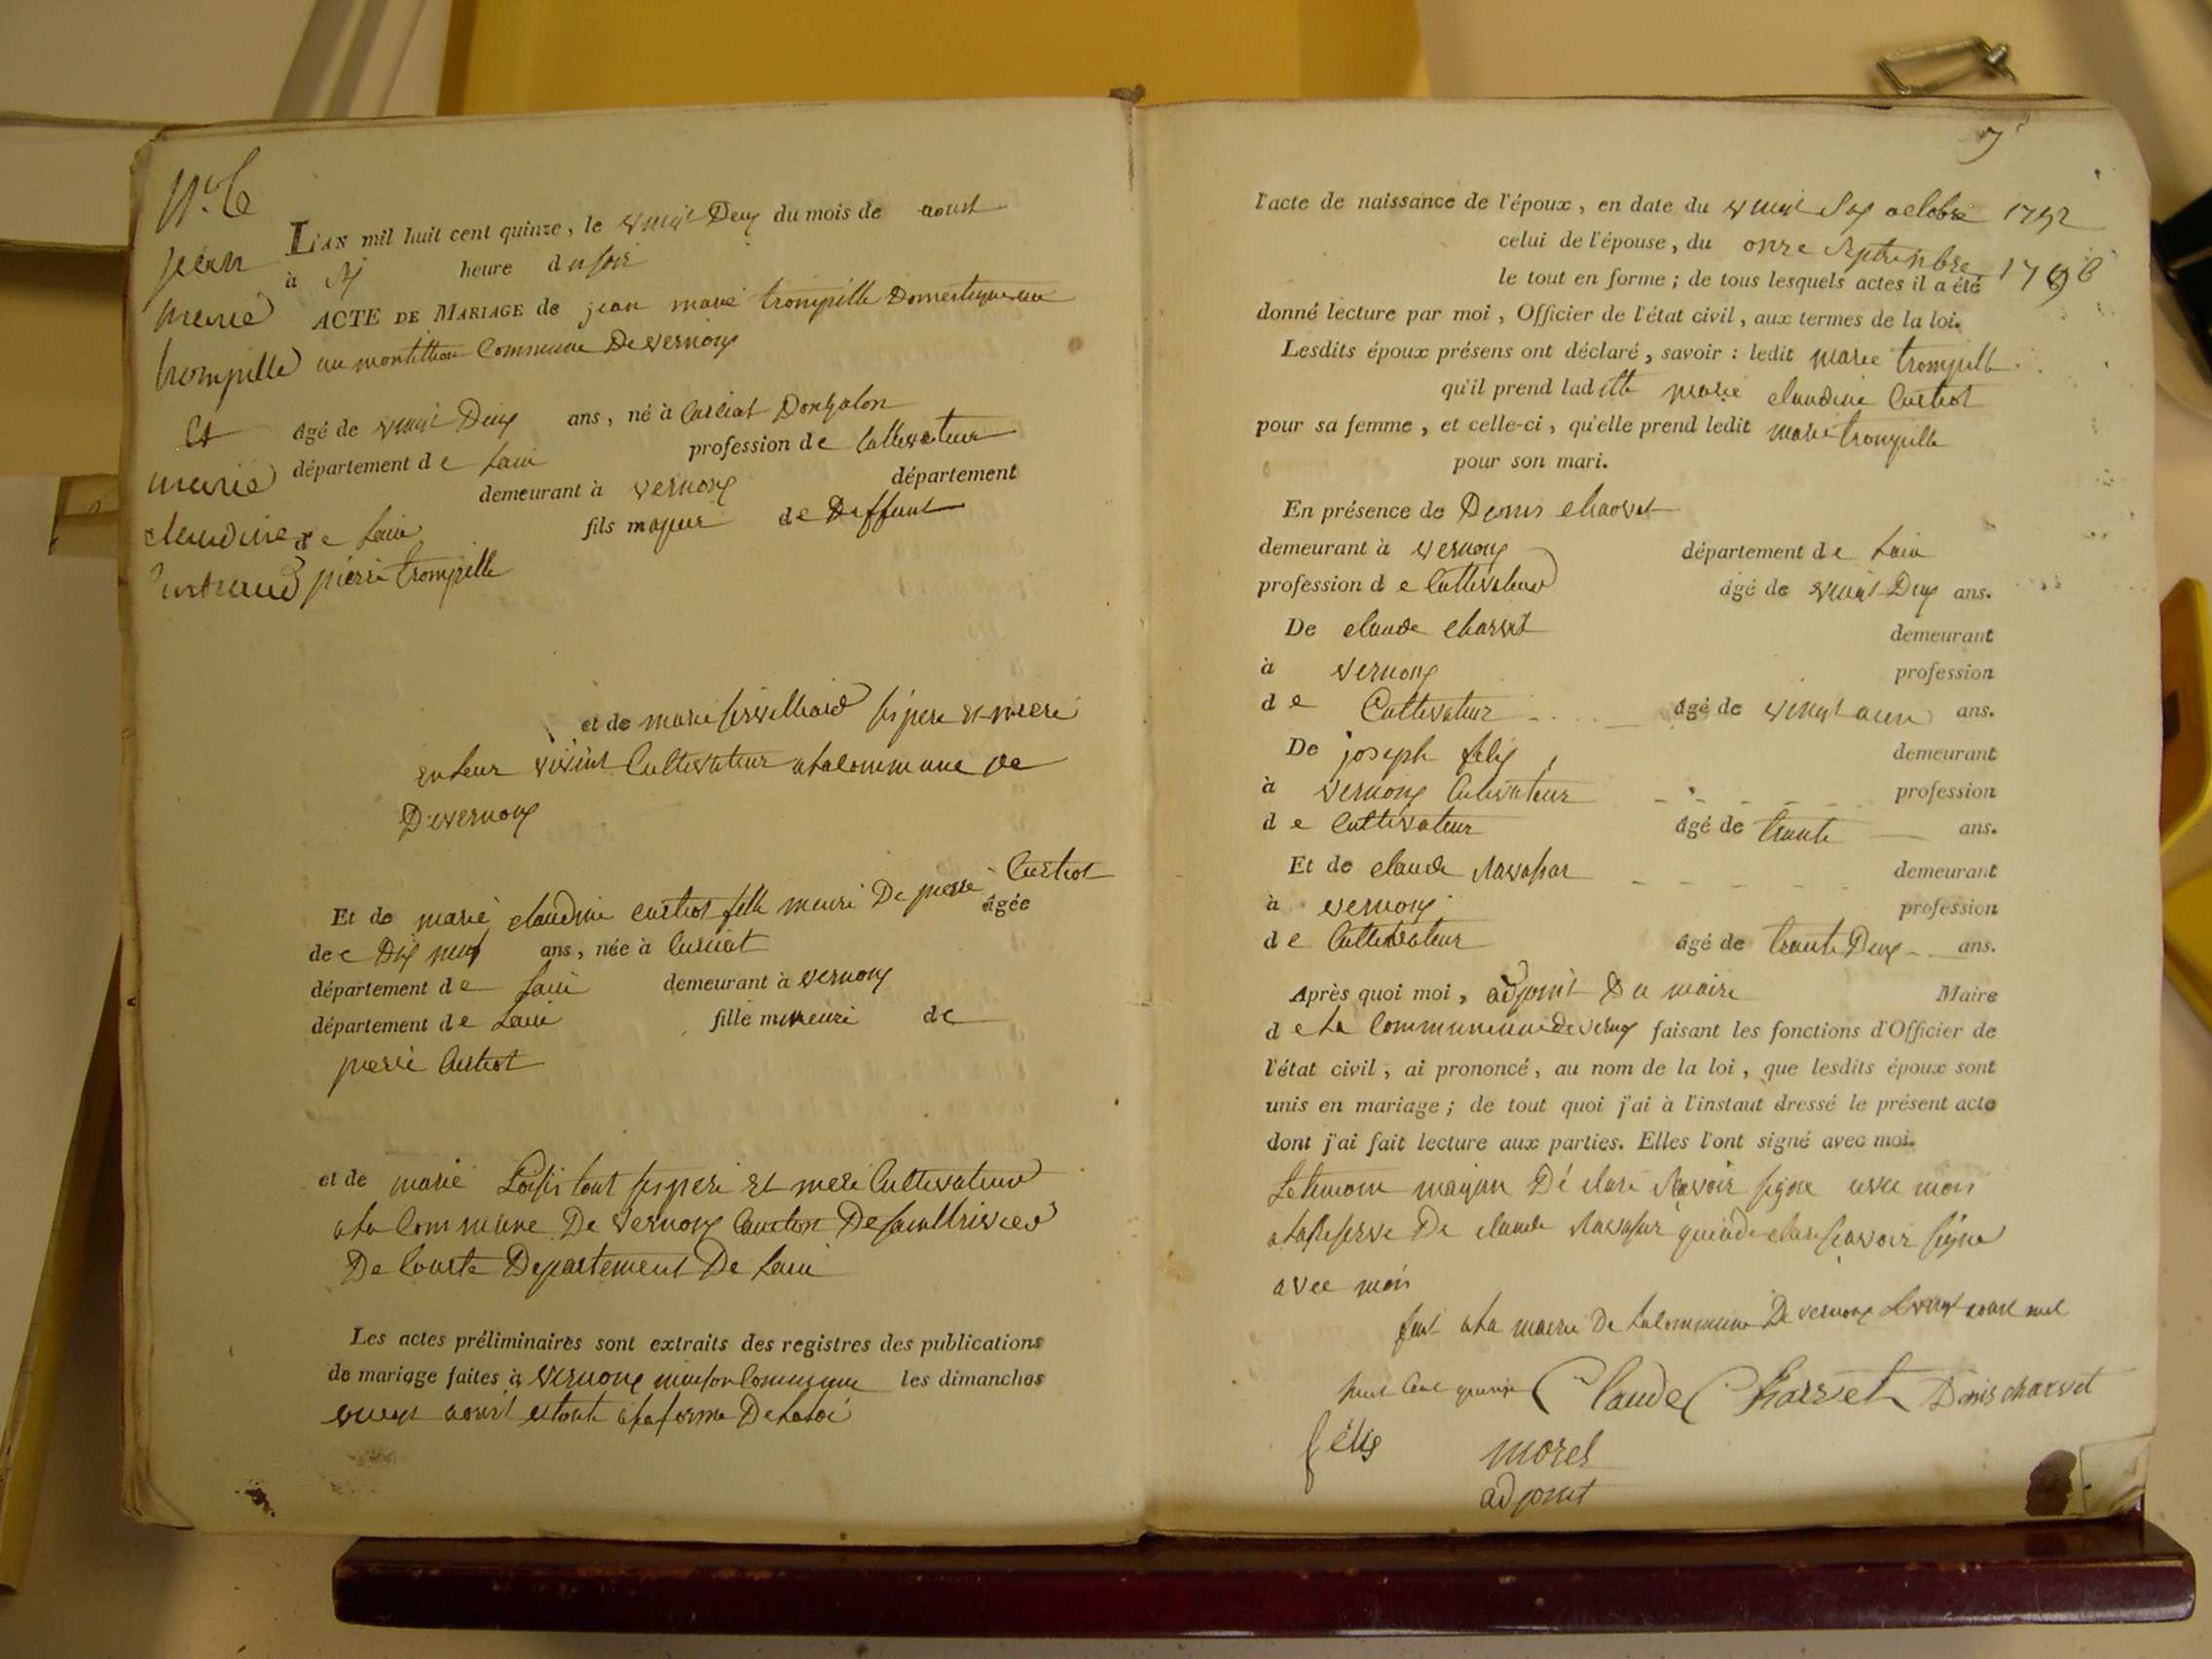 N.° 6
jean
marie
trompille
Et
marie
claudine
L'AN mil huit cent quinze, le vingt Deux du mois de aoust
à six heure du soir
ACTE DE MARIAGE de jean marie trompille Domestique
au montillion Commune De vernoux
âgé de vingt Deux ans, né à Curciat Dongalon
département de Lain profession de Cultivateur
demeurant à vernoux département
de Lain fils majeur de Deffunt
pierre trompille
et de marie servilliard ses pere et mere
en leur vivint Cultivateur a la commune de
De vernoux
Et de marie claudine curtiot fille meure De pierre Curtiot
âgée
de e Dix neuf ans, née à Curciat
département de Lain demeurant à vernoux
département de Lain fille mineure de
pierre Curtiot
et de marie Loisis tout ses pere et mere Cultivateur
a la Commune De vernoux Canton De saint trivier
De Courte Departement De Lain
Les actes préliminaires sont extraits des registres des publications
de mariage faites à vernoux maison Commune les dimanches
vingt aoust et tout a la forme De la loi
7
l'acte de naissance de l'époux, en date du vingt six octobre 1792
celui de l'épouse, du onze septembre 1796
le tout en forme; de tous lesquels actes il a été
donné lecture par moi, Officier de l'état civil, aux termes de la loi.
Lesdits époux présens ont déclaré, savoir: ledit marie trompille
qu'il prend laditte marie claudine Curtiot
pour sa femme, et celle-ci, qu'elle prend ledit marie trompille
pour son mari.
En présence de Denis charvet
demeurant à vernoux département de Lain
profession de Cultivateur âgé de vingt Deux ans.
De claude charvet demeurant
à vernoux profession
de Cultivateur âgé de vingt ans.
De joseph felix demeurant
à vernoux Cultivateur profession
de Cultivateur âgé de trante ans.
Et de claude demeurant
à vernoux profession
de Cultivateur âgé de trante Deux ans.
Après quoi moi, adjoint Du maire Maire
de la Commune de vernoux faisant les fonctions d'Officier de
l'état civil, ai prononcé, au nom de la loi, que lesdits époux sont
unis en mariage; de tout quoi j'ai à l'instaut dressé le présent acte
dont j'ai fait lecture aux parties. Elles l'ont signé avec moi.
De clare savoir signe avec moi
a la reserve De claude qui a declare savoir signe
avec moi
fait a la mairie De la commune De vernoux le vingt aout mil
huit Cent quinze Claude Charvet Denis charvet
félix morel
adjoint